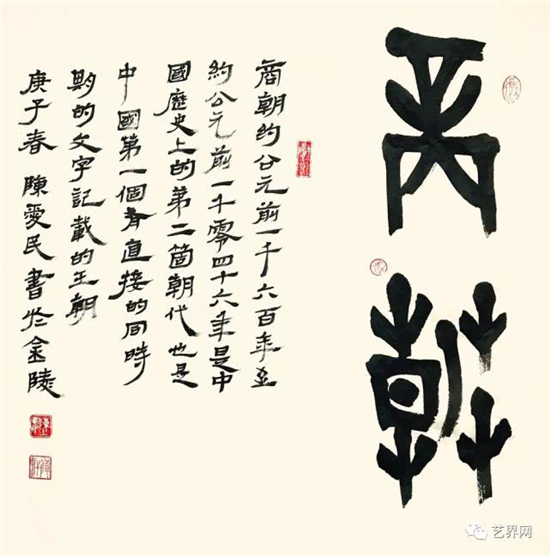 商朝
商朝約公元前一千六百年至
約公元前一千零四十六年是中
國歷史上的第二箇朝代也是
中國第一個有直接的同時
期的文字記載的王朝
庚子春 陳愛民書於金陵
艺界网